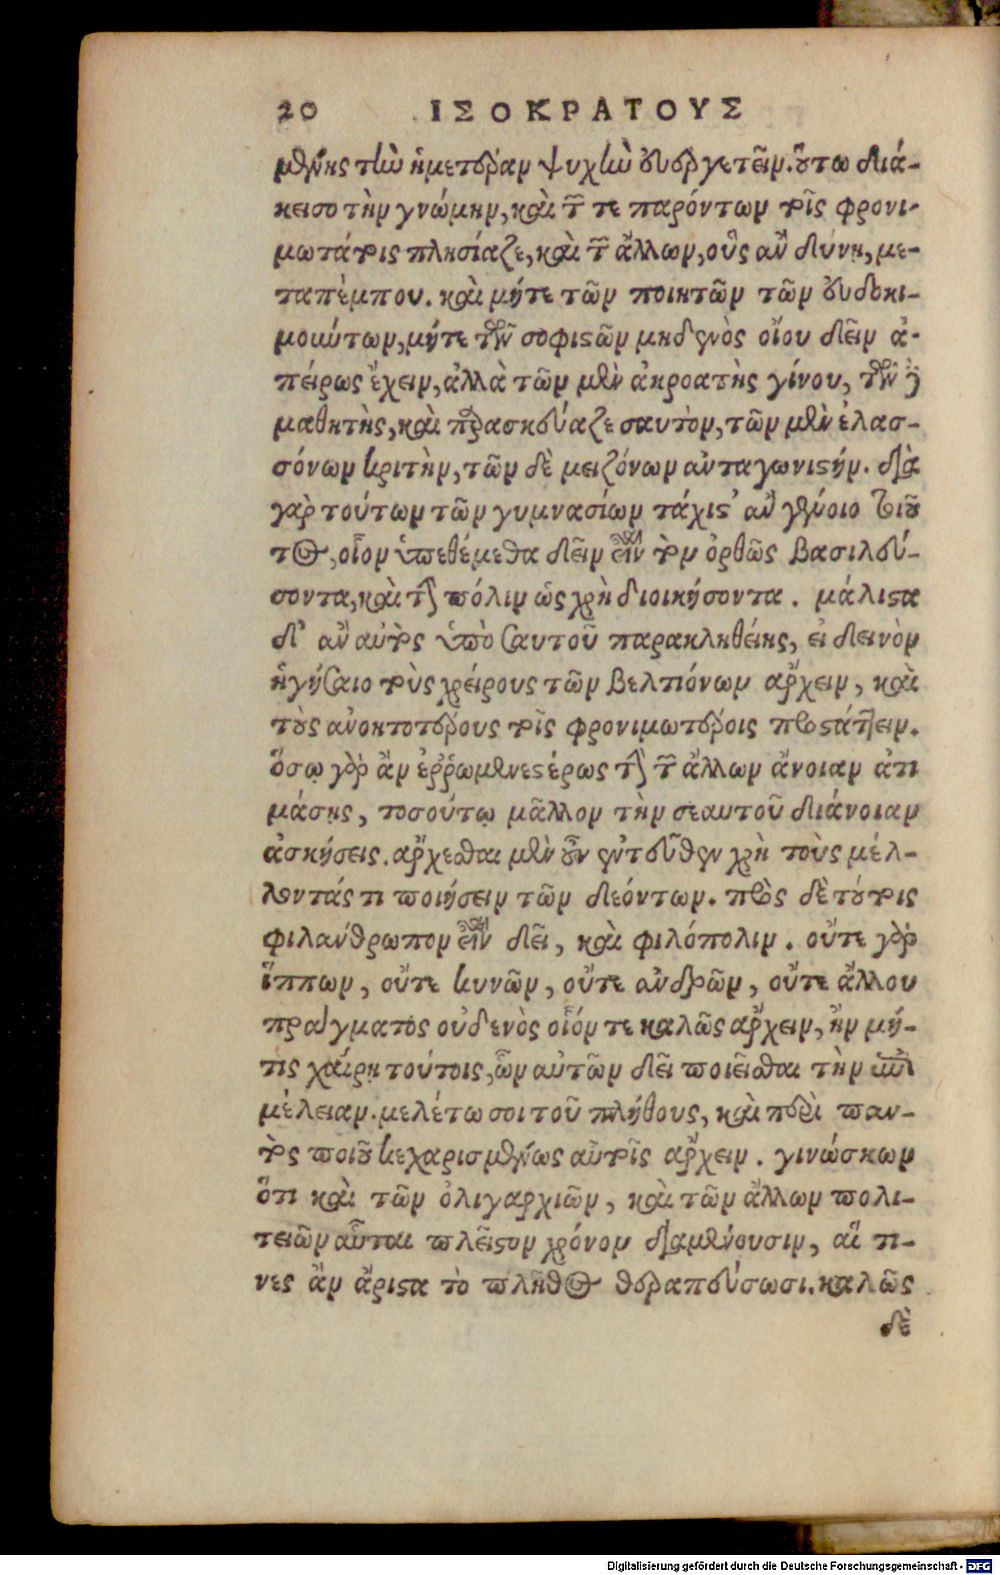 20 ΙΣΟΚΡΑΤΟΥΣ
μένης τὴν ἡμετέραν ψυχὴν εὐεργετεῖν. οὕτω διά-
κεισο τὴν γνώμην, καὶ τῶν τε παρόντων τοῖς φρονι-
μωτάτοις πλησίαζε, καὶ τῶν ἄλλων, οὓς ἂν δύνῃ, με-
ταπέμπου. καὶ μήτε τῶν ποιητῶν τῶν εὐδοκι-
μούντων, μήτε τῶν σοφιστῶν μηδενὸς οἴου δεῖν ἀ-
πείρως ἔχειν, ἀλλὰ τῶν μὲν ἀκροατὴς γίνου, τῶν δὲ
μαθητὴς, καὶ παρασκεύαζε σαυτὸν, τῶν μὲν ἐλασ-
σόνων κριτὴν, τῶν δὲ μειζόνων ἀνταγωνιστήν. διὰ
γὰρ τούτων τῶν γυμνασίων τάχιστ' ἂν γένοιο τοιοῦ
τος, οἷον ὑπεθέμεθα δεῖν εἶναι τὸν ὀρθῶς βασιλεύ-
σοντα, καὶ τὴν πόλιν ὡς χρὴ διοικήσοντα. μάλιστα
δ' ἂν αὐτὸς ὑπὸ σαυτοῦ παρακληθείης, εἰ δεινὸν
ἡγήσαιο τοὺς χείρους τῶν βελτιόνων ἄρχειν, καὶ
τοὺς ἀνοητοτέρους τοῖς φρονιμωτέροις προστάττειν.
ὅσῳ γὰρ ἂν ἐῤῥωμενεστέρως τὴν τῶν ἄλλων ἄνοιαν ἀτι
μάσῃς, τοσούτῳ μᾶλλον τὴν σεαυτοῦ διάνοιαν
ἀσκήσεις. ἄρχεσθαι μὲν οὖν ἐντεῦθεν χρὴ τοὺς μέλ-
λοντάς τι ποιήσειν τῶν δεόντων. πρὸς δὲ τούτοις
φιλάνθρωπον εἶναι δεῖ, καὶ φιλόπολιν. οὔτε γὰρ
ἵππων, οὔτε κυνῶν, οὔτε ἀνδρῶν, οὔτε ἄλλου
πράγματος οὐδενὸς οἷόν τε καλῶς ἄρχειν, ἢν μή-
τις χαίρῃ τούτοις, ὧν αὐτῶν δεῖ ποιεῖσθαι τὴν ἐπι
μέλειαν. μελέτω σοι τοῦ πλήθους, καὶ περὶ παν-
τὸς ποιοῦ κεχαρισμένως αὐτοῖς ἄρχειν. γινώσκων
ὅτι καὶ τῶν ὀλιγαρχιῶν, καὶ τῶν ἄλλων πολι-
τειῶν αὗται πλεῖστον χρόνον διαμένουσιν, αἵ τι-
νες ἂν ἄριστα τὸ πλῆθος θεραπεύσωσι. καλῶς
δὲ
Digitalisierung gefördert durch die Deutsche Forschungsgemeinschaft - DFG